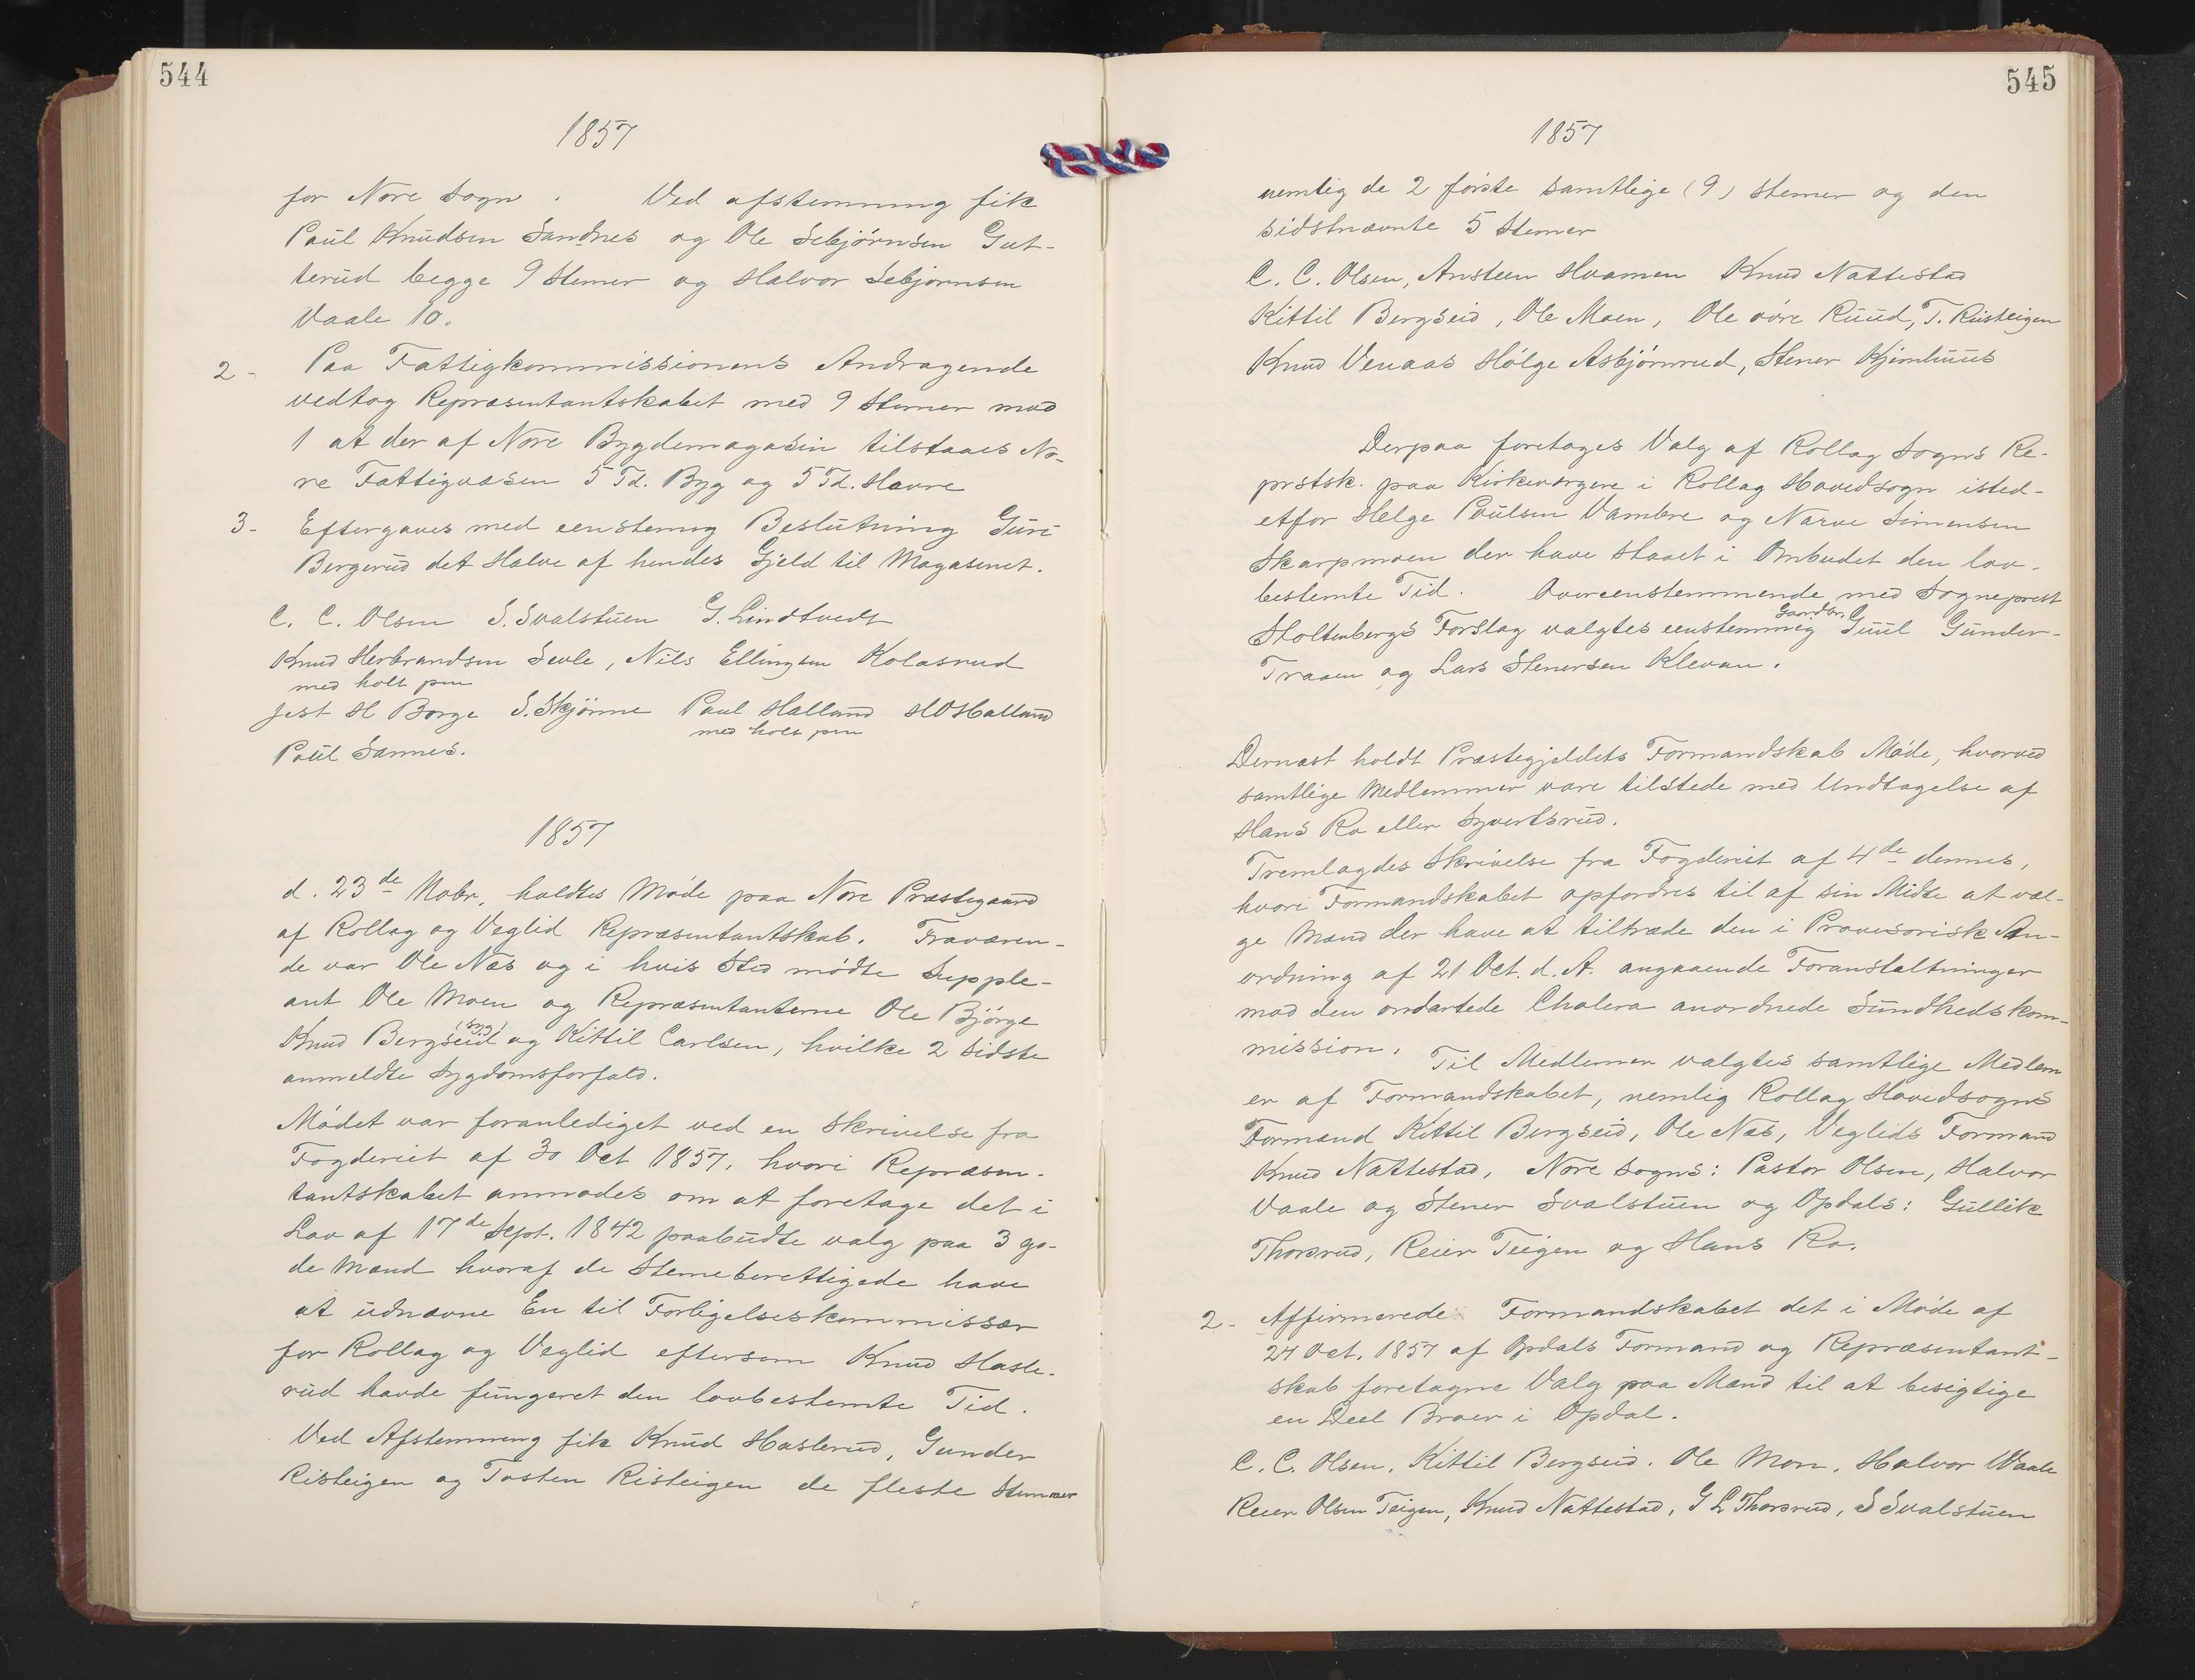 544
1857
for Nore Sogn . Ved afstemning fik
Paul Knudsen Sandnes og Ole Sebjørnsen Gut-
terud begge 9 Stemer og Halvor Sebjørnsen
Vaale 10.
2- Paa Fattigkommissionens Andragende
vedtog Repræsentantskabet med 9 Stemer mod
1 at der af Nore Bygdemagasin tilstaaes No-
re Fattigvæsen 5 Td. Byg og 5 Td. Havre
3- Eftergaves med eenstemig Beslutning Guri
Bergerud det Halve af hendes Gjeld til Magasinet.
C. C. Olsen S. Svalstuen G. Lindtvedt
Knud Herbrandsen Sevle, Nils Ellingsen Kolasrud
med holt pen
Jest H Borge S. Skjönne Paul Halland HO Halland
med holt pen
Paul Sannes.
1857
d. 23de Nobr. holdtes Møde paa Nore Præstegaard
af Rollag og Veglid Repræsentantskab. Fraværen-
de var Ole Næs og i hvis Sted mødte Supple-
ant Ole Moen og Repræsentanterne Ole Bjørge
Knud Bergseid og Kittil Carlsen, hvilke 2 sidste
anmeldte Sygdomsforfald.
Mødet var foranlediget ved en Skrivelse fra
Fogderiet af 30 Oct 1857, hvori Repræsen-
tantskabet anmodes om at foretage det i
Lov af 17de Sept. 1842 paabudte valg paa 3 go-
de Mænd hvoraf de Stemeberettigede have
at udnævne En til Forligelseskommissær
for Rollag og Veglid eftersom Knud Hasle-
rud havde fungeret den lovbestemte Tid.
Ved Afstemning fik Knud Haslerud, Gunder
Risteigen og Tosten Risteigen de fleste Stemmer
545
1857
nemlig de 2 første samtlige (9) stemer og den
sidstnævnte 5 Stemer
C. C. Olsen, Ansteen Hvamen Knud Nattestad
Kittil Bergseid, Ole Moen, Ole øvre Ruud, T. Risteigen
Knud Venaas Hølge Asbjørnrud, Stener Kjemhuus
Derpaa foretoges Valg af Rollag Sogns Re-
prstsk. paa Kirkeværgere i Rollag Hovedsogn isted-
etfor Helge Poulsen Vambre og Narve Simensen
Skarpmoen der have staaet i Ombudet den lov-
bestemte Tid. Overeenstemmende med Sogneprest
Gaardbr.
Stoltenbergs Forslag valgtes eenstemmig Guul Gunder-
Traaen og Lars Stenersen Klevan.
Dernæst holdt Præstegjeldets Formandskab Møde, hvorved
samtlige Medlemmer vare tilstede med Undtagelse af
Hans Ro eller Syvertsrud.
Fremlagdes Skrivelse fra Fogderiet af 4de dennes,
hvori Formandskabet opfordres til af sin Midte at væl-
ge Mænd der have at tiltræde den i Provisorisk An-
ordning af 21 Oct. d. A. angaaende Foranstaltninger
mod den ondartede Cholera anordnede Sundhedskom-
mission. Til Medlemer valgtes samtlige Medlem
er af Formandskabet, nemlig Rollag Hovedsogns
Formænd Kittil Bergseid, Ole Næs, Veglids Formand
Knud Nattestad, Nore Sogns: Pastor Olsen, Halvor
Vaale og Stener Svalstuen og Opdals: Gullik
Thorsrud, Reier Teigen og Hans Ro.
2- Affirmerede Formandskabet det i Møde af
24 Oct. 1857 af Opdals Formand og Repræsentant-
skab foretagne Valg paa Mænd til at besigtige
en Deel Broer i Opdal.
C. C. Olsen, Kittil Bergseid. Ole Moen. Halvor Waale
Reier Olsen Teigen, Knud Nattestad, G L Thorsrud, S Svalstuen